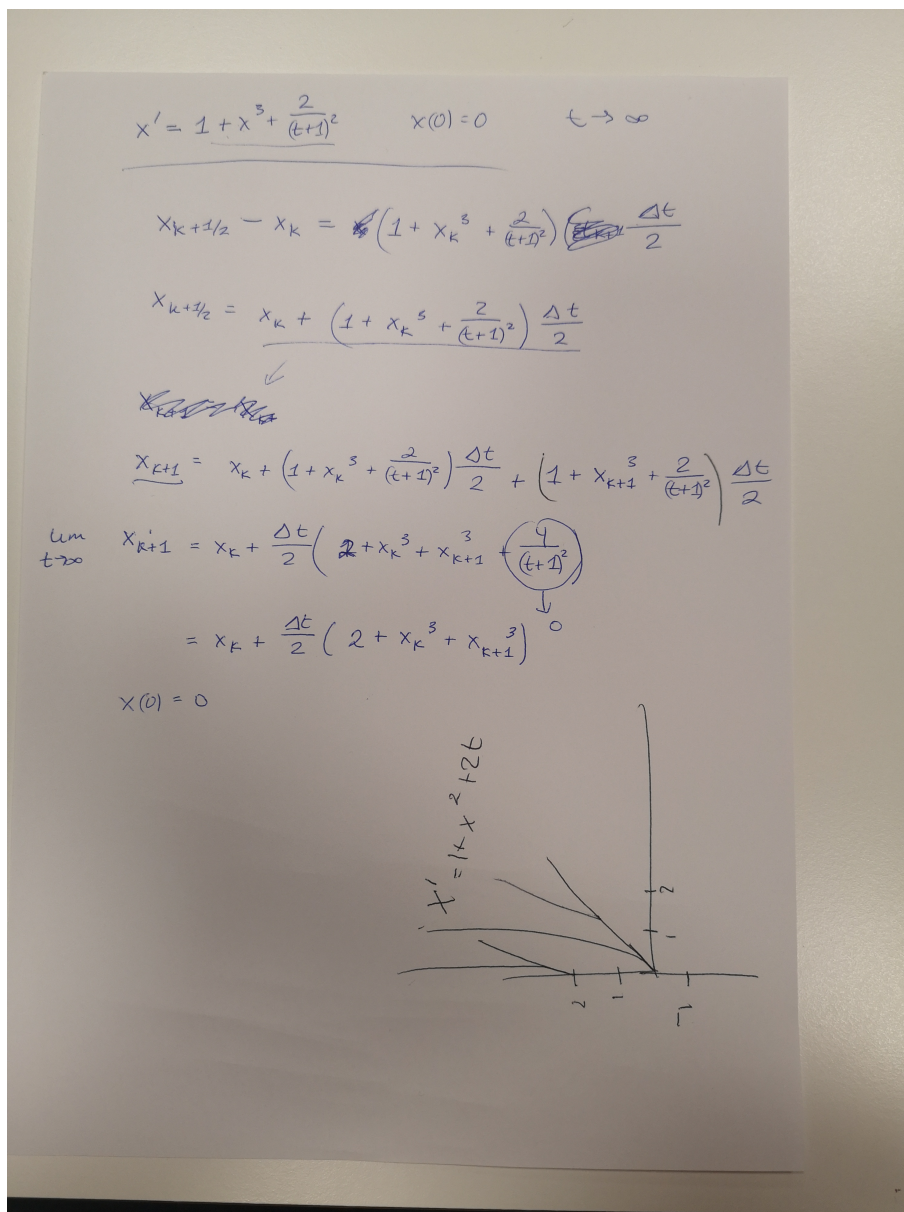 x' = 1 + x³ + 2/(t+1)² x(0)=0 t → ∞
x_{k+1/2} − x_k = (1 + x_k³ + 2/(t+1)²) Δt/2
x_{k+1/2} = x_k + (1 + x_k³ + 2/(t+1)²) Δt/2
x_{k+1} = x_k + (1 + x_k³ + 2/(t+1)²) Δt/2 + (1 + x_{k+1}³ + 2/(t+1)²) Δt/2
lim t→∞ x_{k+1} = x_k + Δt/2 (2 + x_k³ + x_{k+1}³ + 4/(t+1)²)
↓ 0
= x_k + Δt/2 (2 + x_k³ + x_{k+1}³)
x(0) = 0
x' = 1+x²+2t
2
1
2
1
-1